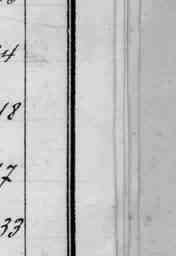 4
18
7
33